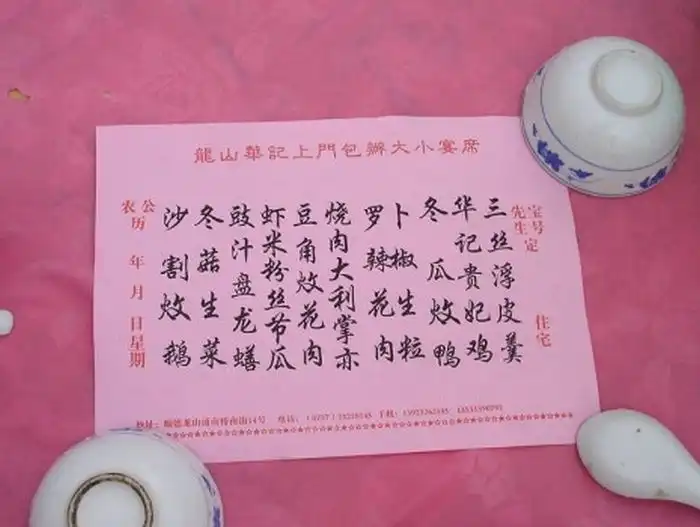 龍山華記上門包辦大小宴席
宝号
先生 定
住宅
三丝浮皮羹
华记贵妃鸡
冬瓜炆鸭
卜椒生粒
罗辣花肉
烧肉大利掌亦
豆角炆花肉
虾米粉丝节瓜
豉汁盘龙鳝
冬菇生菜
沙割炆鹅
公
农 历 年 月 日星期
地址：顺德龙山 14号 电话： 手机：